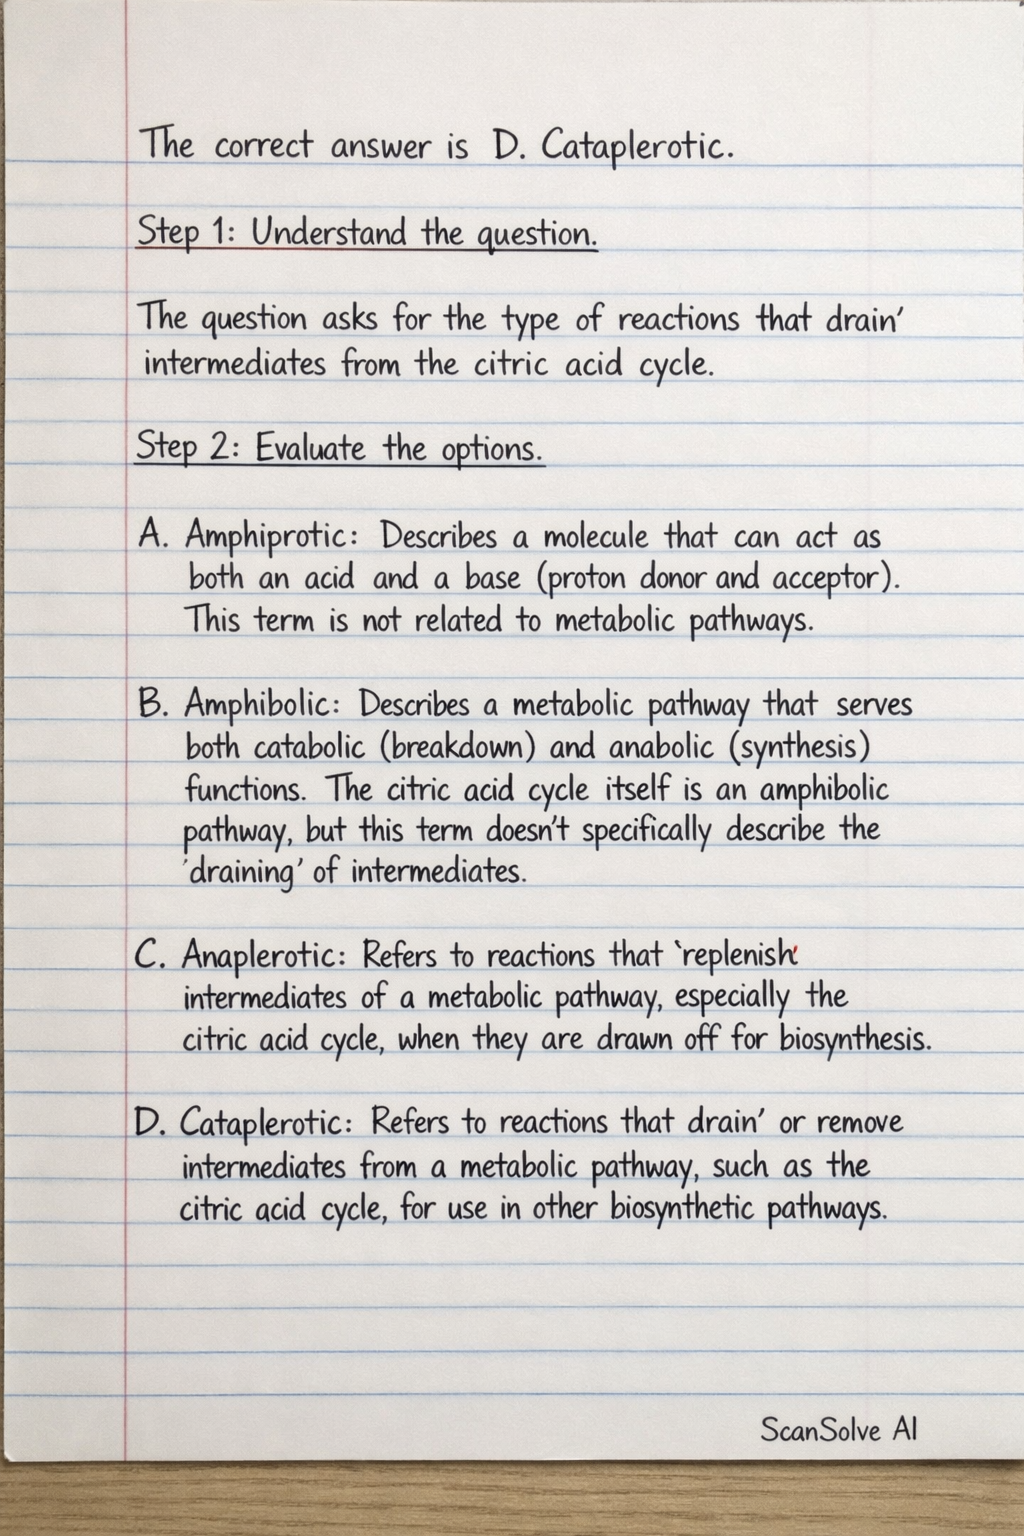 The correct answer is D. Cataplerotic.
Step 1: Understand the question.
The question asks for the type of reactions that drain'
intermediates from the citric acid cycle.
Step 2: Evaluate the options.
A. Amphiprotic: Describes a molecule that can act as
both an acid and a base (proton donor and acceptor).
This term is not related to metabolic pathways.
B. Amphibolic: Describes a metabolic pathway that serves
both catabolic (breakdown) and anabolic (synthesis)
functions. The citric acid cycle itself is an amphibolic
pathway, but this term doesn't specifically describe the
'draining' of intermediates.
C. Anaplerotic: Refers to reactions that 'replenish'
intermediates of a metabolic pathway, especially the
citric acid cycle, when they are drawn off for biosynthesis.
D. Cataplerotic: Refers to reactions that drain' or remove
intermediates from a metabolic pathway, such as the
citric acid cycle, for use in other biosynthetic pathways.
ScanSolve AI